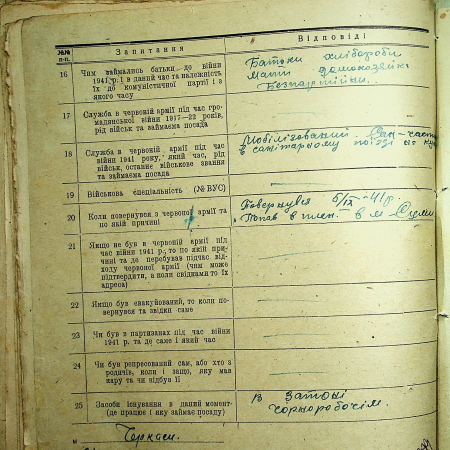 №№ п-п. Запитання Відповіді
16 Чим займались батьки до війни
1941 р. і в даний час та належність
їх до комуністичної партії і з
якого часу
Батьки хлібороби
Мати домохозяйка
Безпартійни.
17 Служба в червоній армії під час гро-
мадянської війни 1917—22 років,
рід військ та займаєма посада
18 Служба в червоній армії під час
війни 1941 року, який час, рід
військ, останнє військове звання
та займаєма посада
Мобілізований. Сан. части
в санітарному поізді
19 Військова спеціяльність (№ ВУС)
20 Коли повернувся з червоної армії та
по якій причині
Повернувся 5/IX - 41 р.
Попав в плен. в м. Суми
21 Якщо не був в червоній армії під
час війни 1941 р., то по якій при-
чині та де перебував підчас від-
ходу червоної армії (чим може
підтвердити, а коли свідками то їх
адреса)
22 Якщо був евакуйований, то коли по-
вернувся та звідки саме
23 Чи був в партизанах під час війни
1941 р. та де саме і який час
24 Чи був репресований сам, або хто з
родичів, коли і защо, яку мав
кару та чи відбув її
25 Засоби існування в даний момент
(де працює і яку займає посаду)
в Затоні
чорноробочім.
м Черкаси.